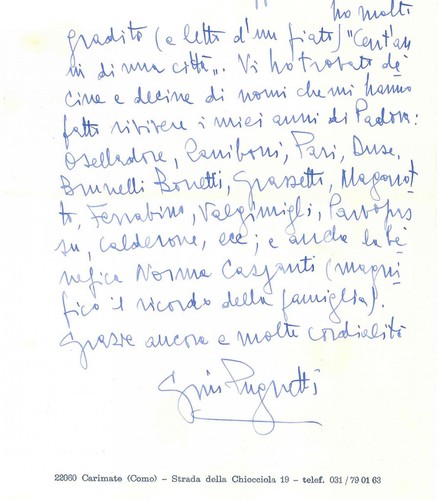 ho molto
gradito (e letto d'un fiato) "Cent'an
ni di una città". Vi ho trovato de
cine e decine di nomi che mi hanno
fatto rivivere i miei anni di Padova:
Oselladore, Zaniboni, Pari, Duse,
Brunelli Bonetti, Grassetti, Maganot
to, Ferrabino, Valgimigli,
Calderone, ecc; e anche la be
nefica Norma (magni
fico il ricordo della famiglia).
Grazie ancora e molte cordialità
Gino Pugnetti
22060 Carimate (Como) – Strada della Chiocciola 19 – telef. 031 / 79 01 63